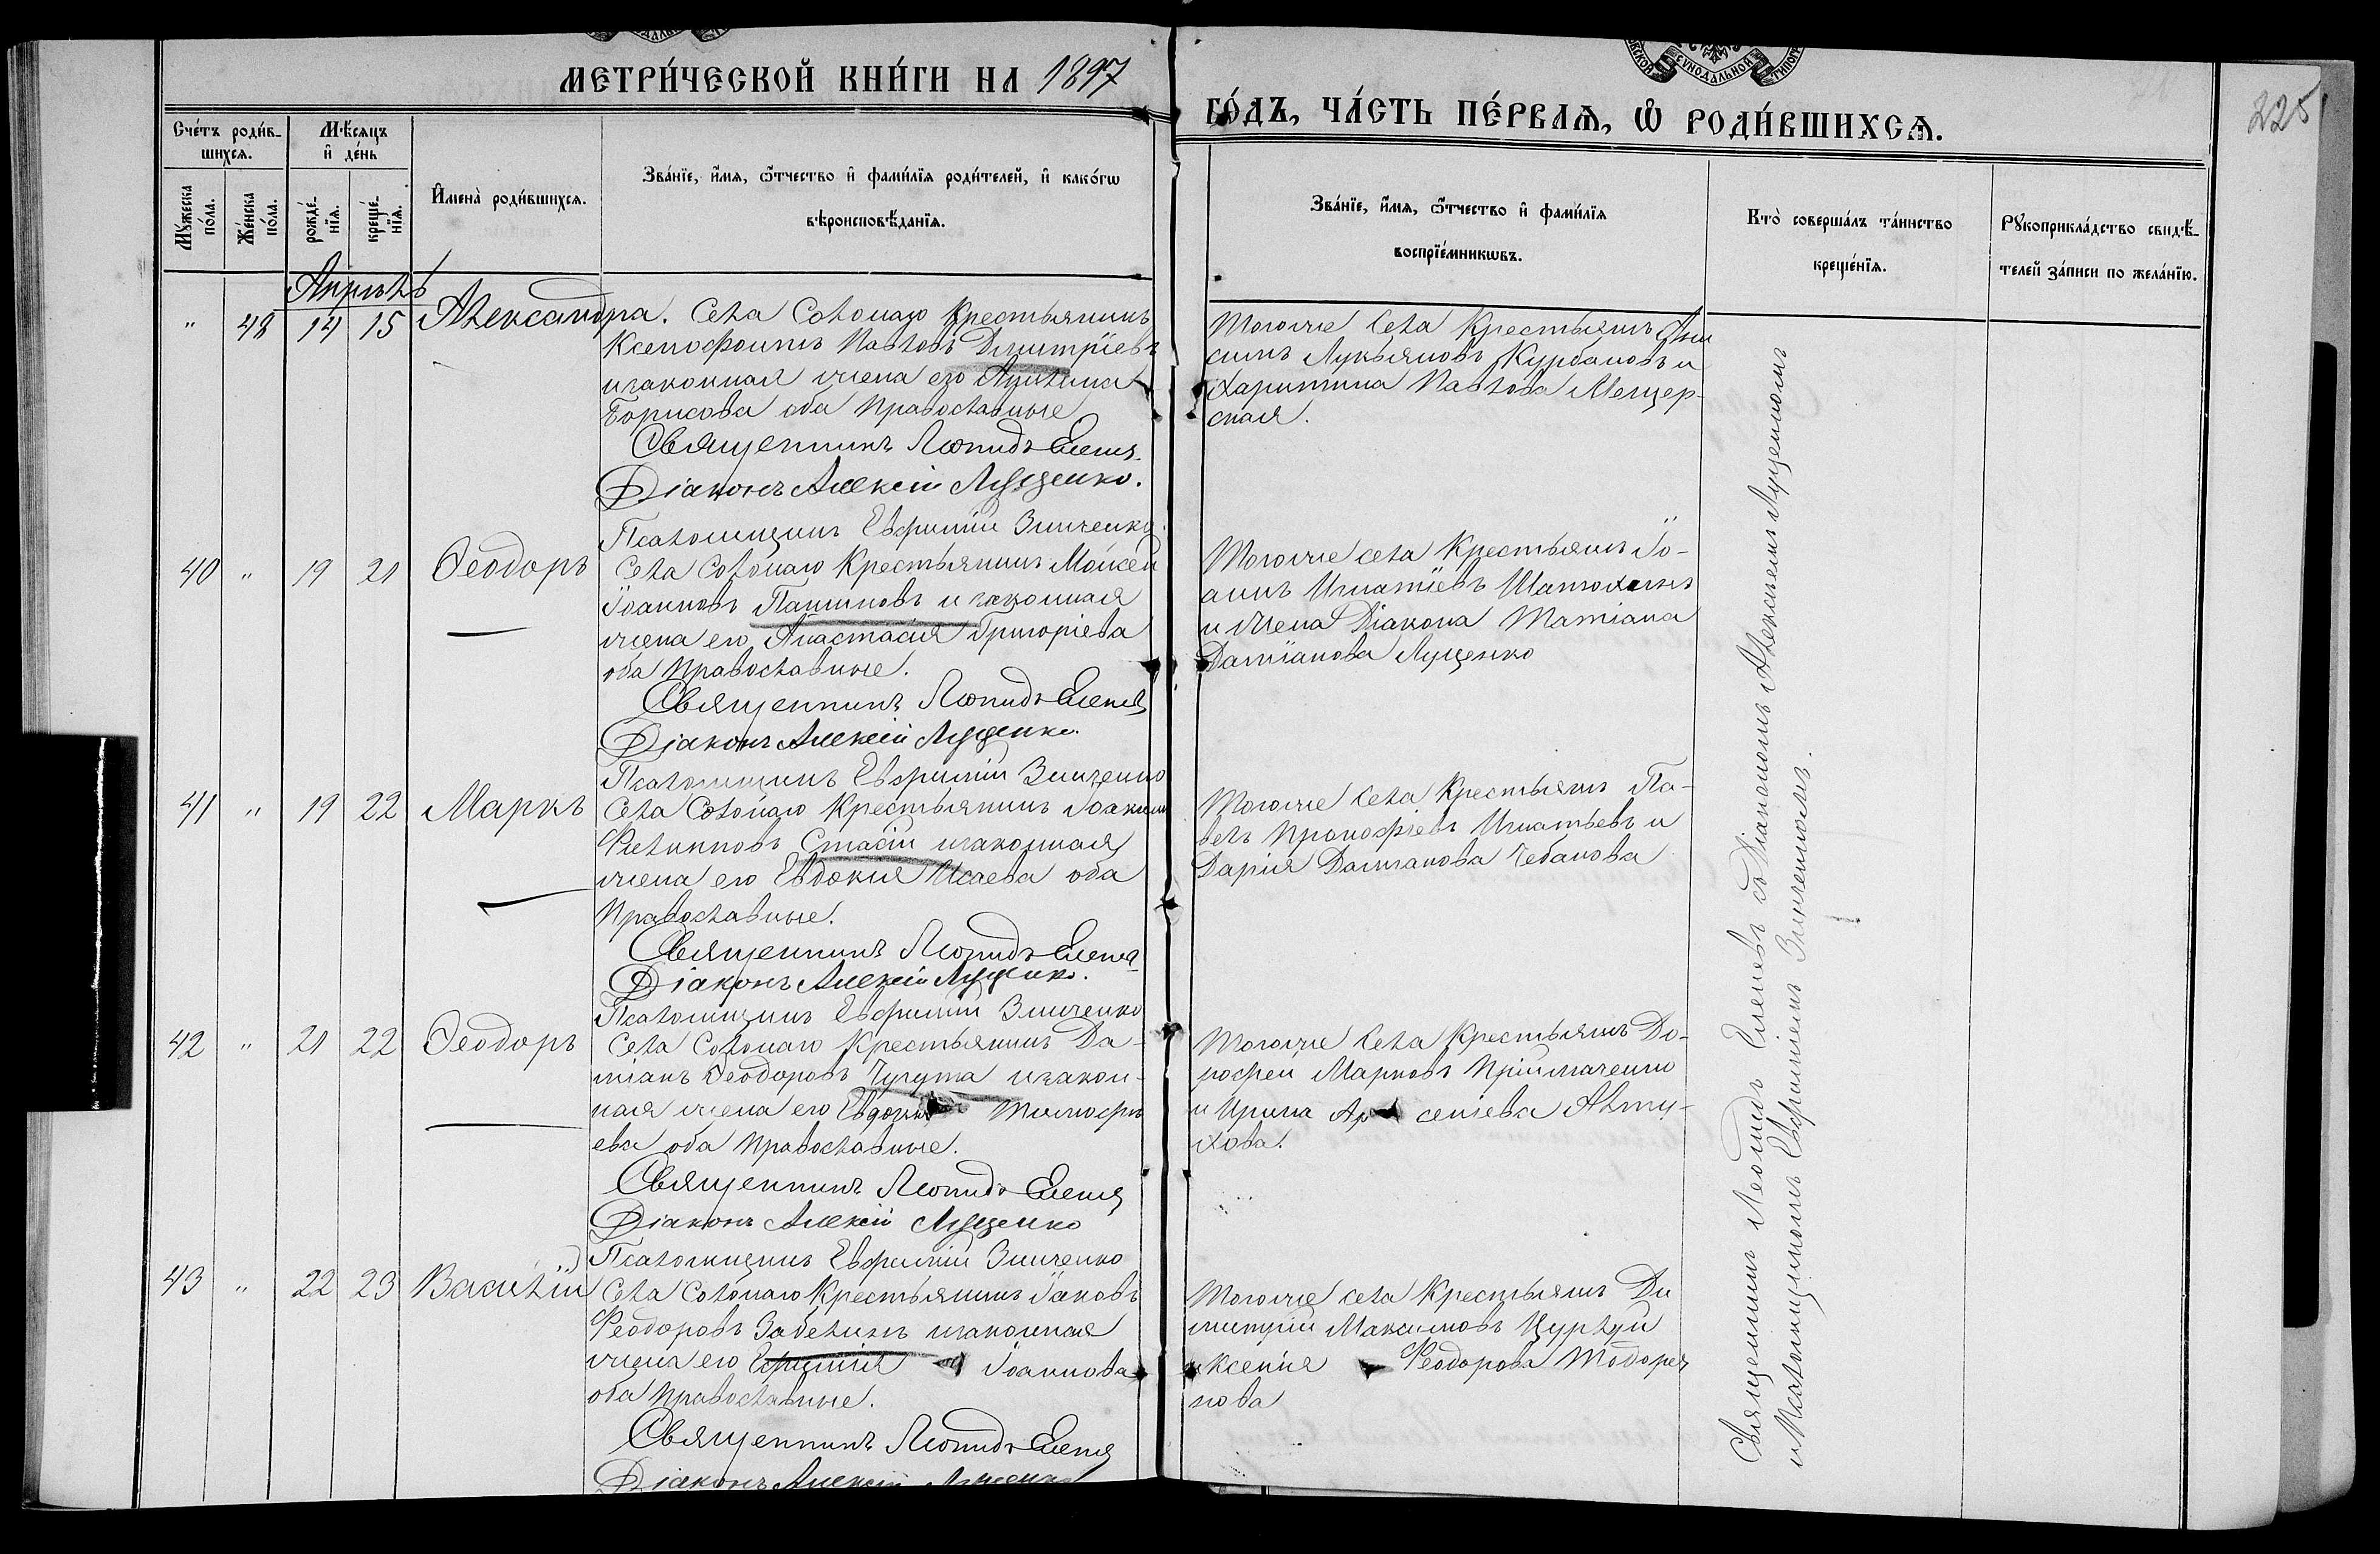 МЕТРИ́ЧЕСКОЙ КНИ́ГИ НА 1897
ГО́ДЪ, ЧА́СТЬ ПЕ́РВАѦ, Ѡ РОДИ́ВШИХСѦ.
225
Сче́тъ роди́в-
шихсѧ.
Мѣ́сѧцъ
и҆ де́нь
Мꙋ́жеска
по́ла.
Же́нска
по́ла.
рожде́-
нїѧ.
креще́-
нїѧ.
И҆мена̀ роди́вшихсѧ.
Зва́нїе, и҆́мѧ, ѻ҆́тчество и҆ фами́лїѧ роди́телей, и҆ како́гѡ
вѣроисповѣ́данїѧ.
Зва́нїе, и҆́мѧ, ѻ҆́тчество и҆ фами́лїѧ
воспрїе́мникѡвъ.
Кто̀ соверша́лъ та́инство
креще́нїѧ.
Рꙋкоприкла́дство свидѣ́-
телей за́писи по жела́нїю.
Апрѣль
" 48 14 15 Александра. Села Солонаго Крестьянинъ
Ксенофонтъ Павловъ Димитріевъ
и законная жена его Акилина
Борисова оба Православные
Священникъ Леонидъ
Діаконъ Алексій Луценко.
Псаломщикъ Евфимій Зинченко
Тогоже Села Крестьянинъ
Лукьяновъ Курбановъ и
Харитина Павлова Мещер-
ская.
40 " 19 21 Ѳеодоръ Села Солонаго Крестьянинъ Моисей
Іоанновъ Пашиновъ и законная
жена его Анастасія Григоріева
оба Православные.
Священникъ Леонидъ
Діаконъ Алексій Луценко.
Псаломщикъ Евфимій Зинченко
Тогоже села Крестьянинъ Іо-
аннъ Игнатіевъ Шатохинъ
и жена Діакона Татіана
Даміанова Луценко
41 " 19 22 Маркъ Села Солонаго Крестьянинъ Іоакимъ
Филипповъ Стасій и законная
жена его Евдокія Исаева оба
Православные.
Священникъ Леонидъ
Діаконъ Алексій Луценко.
Псаломщикъ Евфимій Зинченко
Тогоже Села Крестьянинъ Па-
велъ Прокофіевъ Игнатьевъ и
Дарія Даміанова Чебанова
42 " 21 22 Ѳеодоръ Села Солонаго Крестьянинъ Да-
міанъ Ѳеодоровъ Чугута и закон-
ная жена его Евдокія Тимофѣ
ева оба Православные.
Священникъ Леонидъ
Діаконъ Алексій Луценко
Псаломщикъ Евфимій Зинченко
Тогоже Села Крестьянинъ До-
рофей Марковъ Пріймаченко
и Ирина Арсеніева Алту-
хова.
43 " 22 23 Василій Села Солонаго Крестьянинъ Іаковъ
Феодоровъ Забелинъ и законная
жена его Іоаннова
оба Православные.
Священникъ Леонидъ
Діаконъ Алексій Луценко
Тогоже села Крестьянинъ Ди
митрій Максимовъ Цуркуй
и Ксенія Феодорова Тодорея
нова
Священникъ Леонидъ съ Діакономъ Алексіемъ Луценкомъ
и Псаломщикомъ Евфиміемъ Зинченкомъ.